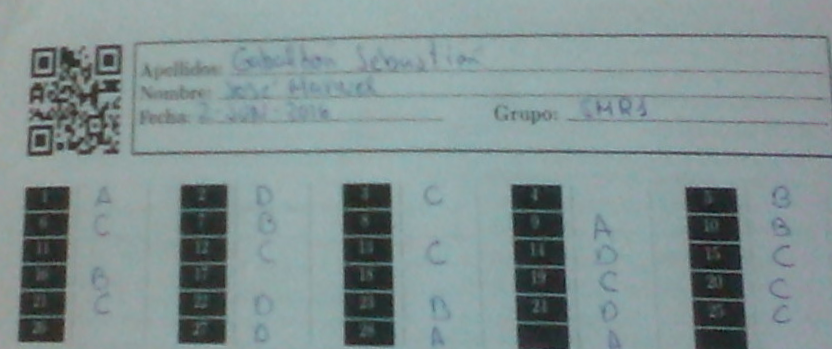 Apellidos: Sebastian
Nombre: José Manuel
Fecha: 2-JUN-2016 Grupo: SMR1
1 A 2 D 3 C 4 5 B
6 C 7 B 8 9 A 10 B
11 12 C 13 C 14 D 15 C
16 B 17 18 19 C 20 C
21 C 22 D 23 B 24 D 25 C
26 27 D 28 A A